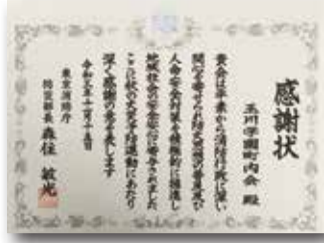 感謝状
玉川学園町内会 殿
貴会は平素から消防行政に深い
関心を寄せられ防火思想の普及及び
人命安全対策を積極的に推進し
地域社会の安全安心に寄与されました
ここに秋の火災予防運動にあたり
深く感謝の意を表します
令和元年十一月十五日
東京消防庁
防災部長 森住 敏光